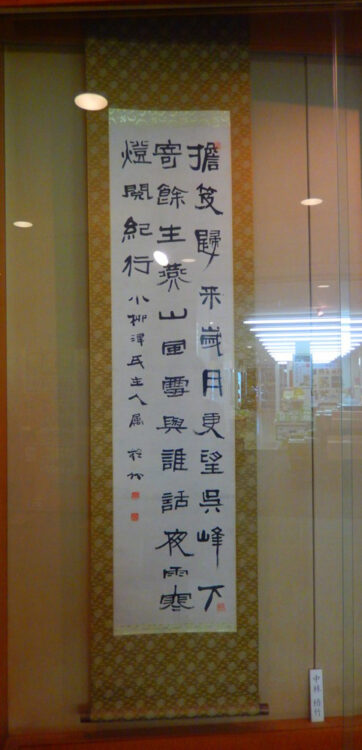 擔笈歸来歳月更望吳峰下
寄餘生燕山風雪與誰話夜雨寒
燈閲紀行 小柳津氏主人属 梧竹
中林 梧竹